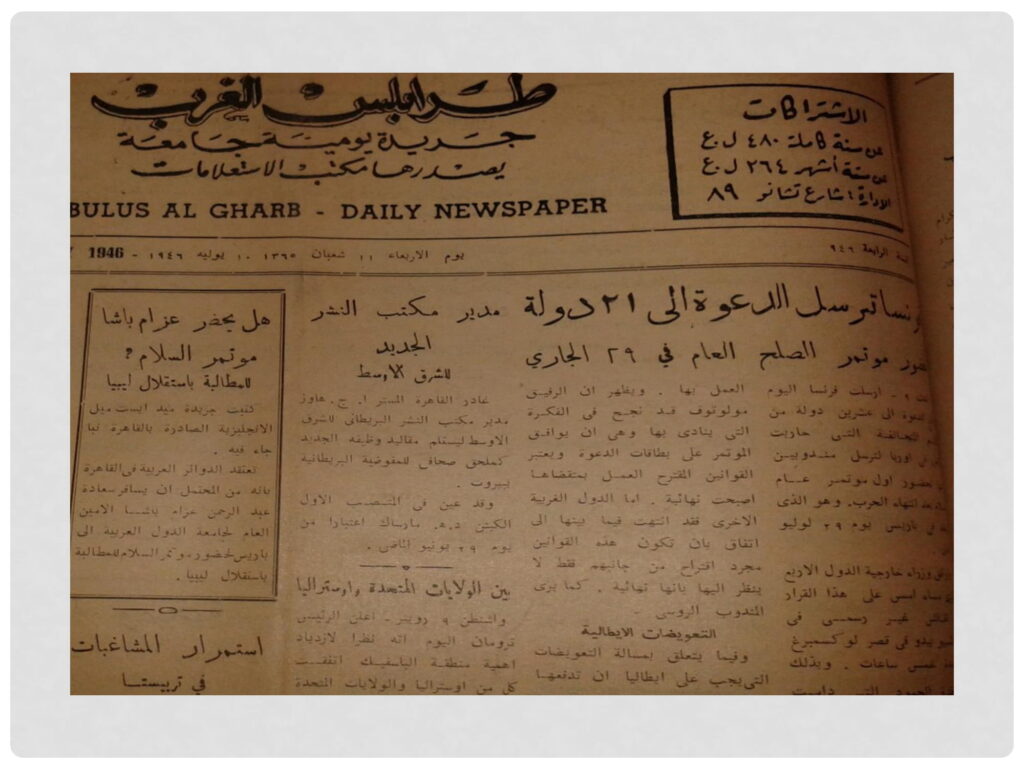 طرابلس الغرب
جريدة يومية جامعة
يصدرها مكتب الاستعلامات
BULUS AL GHARB - DAILY NEWSPAPER
الاشتراكات
عن سنة كاملة ٤٨٠ ل.ع
عن ستة أشهر ٢٦٤ ل.ع
الادارة: شارع تشانو ٨٩
السنة الرابعة ٩٤٦
يوم الاربعاء ١١ شعبان ١٣٦٥ ١٠ يوليه ١٩٤٦ - 1946
نسا ترسل الدعوة الى ٢١ دولة
ور موتمر الصلح العام في ٢٩ الجاري
٩ - ارسلت فرنسا اليوم
الى عشرين دولة من
التي حاربت
اوربا لترسل مندوبين
حضور اول موتمر عام
انتهاء الحرب. وهو الذي
في باريس يوم ٢٩ لوليو
وزراء خارجية الدول الاربع
مساء امس على هذا القرار
غير رسمي في
في قصر لو كسمبرغ
خمس ساعات . وبذلك
العمل بها . ويظهر ان الرفيق
مولوتوف قد نجح في الفكرة
التي ينادى بها وهى ان يوافق
الموتمر على بطاقات الدعوة ويعتبر
القوانين المقترح العمل بمقتضاها
اصبحت نهائية . اما الدول الغربية
الاخرى فقد انتهت فيما بينها الى
اتفاق بان تكون هذه القوانين
مجرد اقتراح من جانبهم فقط لا
ينظر اليها بانها نهائية . كما يرى
المندوب الروسي .
التعويضات الايطالية
وفيما يتعلق بمسالة التعويضات
التى يجب على ايطاليا ان تدفعها
مدير مكتب النشر
الجديد
للشرق الاوسط
غادر القاهرة المستر ا. ج. هاوز
مدير مكتب النشر البريطاني للشرق
الاوسط ليستلم مقاليد وظيفته الجديد
كملحق صحافي للمفوضية البريطانية
ببيروت .
وقد عين فى المنصب الاول
الكبتن د.ه. مارساك اعتبارا من
يوم ٢٩ يونيو الماضى .
بين الولايات المتحدة واوستراليا
واشنطن ٩ رويتر . اعلن الرئيس
ترومان اليوم انه نظرا لازدياد
اهمية منطقة الباسفيك اتفقت
كل من اوستراليا والولايات المتحدة
هل يحضر عزام باشا
موتمر السلام ؟
للمطالبة باستقلال ليبيا
كتبت جريدة ميد ايست ميل
الانجليزية الصادرة بالقاهرة نبا
جاء فيه .
تعتقد الدوائر العربية في القاهرة
بانه من المحتمل ان يسافر سعادة
عبد الرحمن عزام باشا الامين
العام لجامعة الدول العربية الى
باريس لحضور موتمر السلام للمطالبة
باستقلال ليبيا .
استمرار المشاغبات
في تربيستا